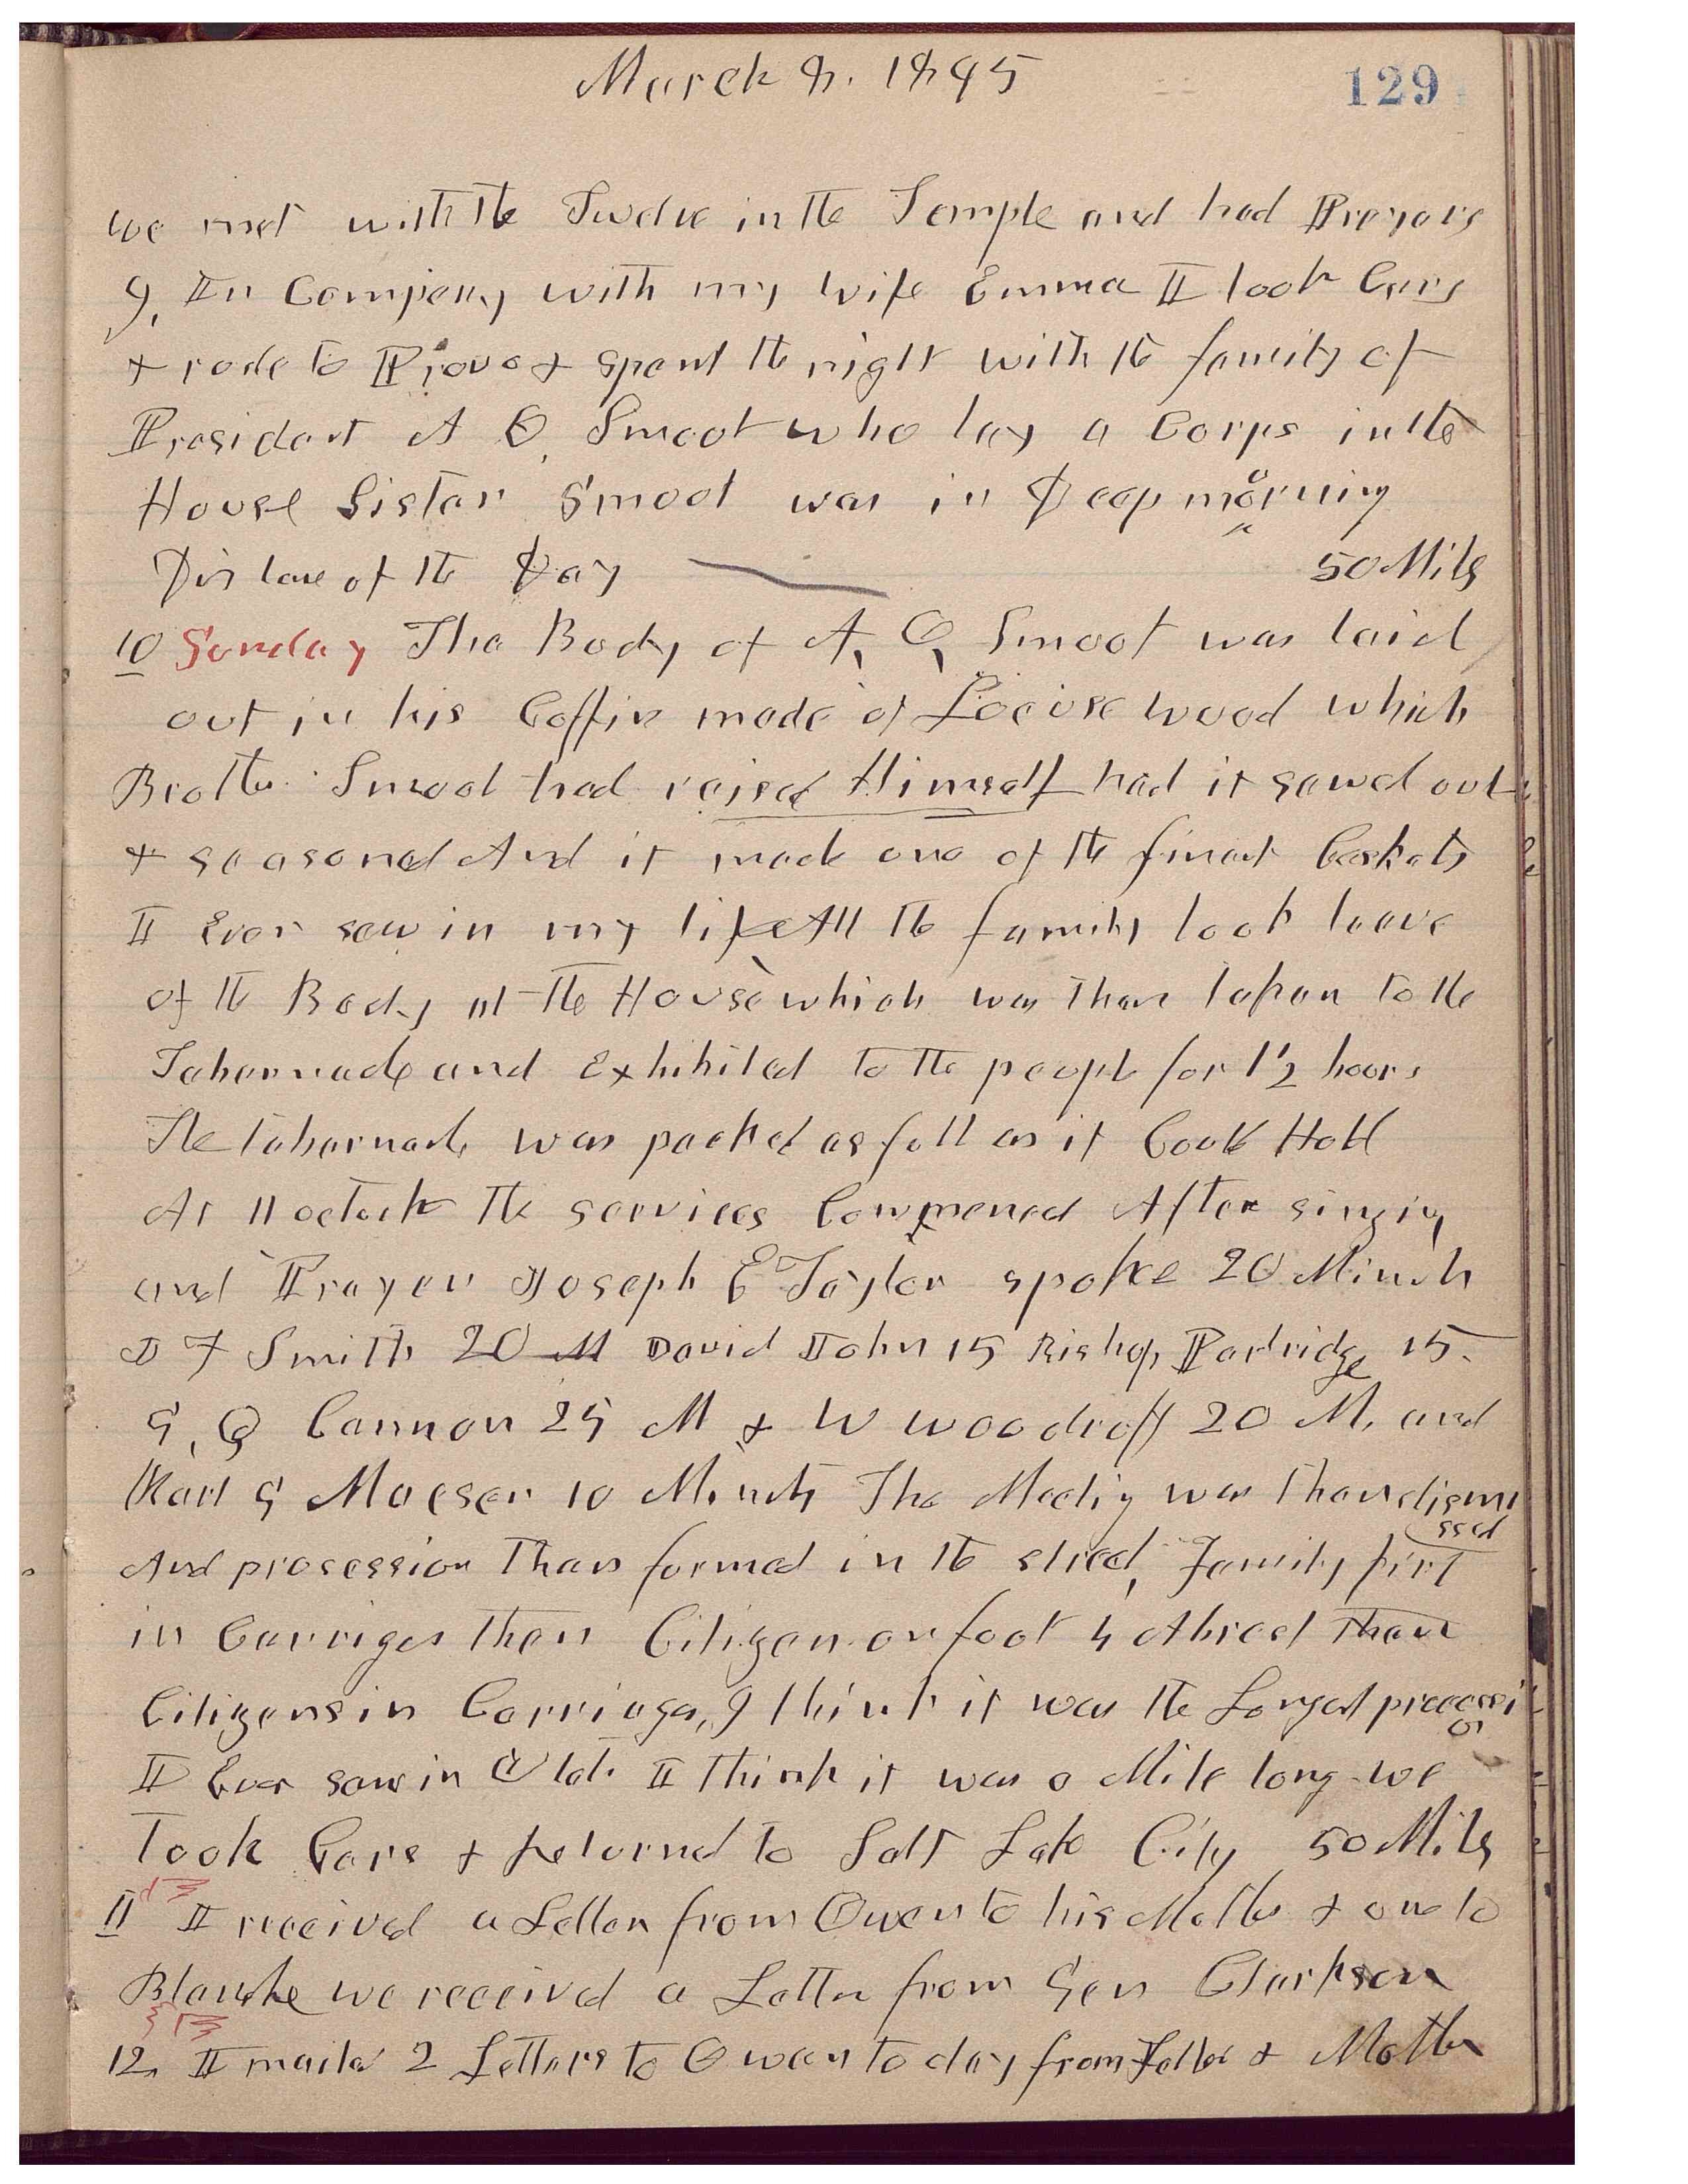 March 8. 1895
129
we met with the Twelve in the Temple and had Prayers
9, In Company with my wife Emma I took Cars
+ rode to Provo + spent the night with the family of
President A O, Smoot who lay a Corps in the
House Sister Smoot was in Deep morning
Distance of the Day 50 Miles
10 Sunday The Body of A, O, Smoot was laid
out in his Coffin made of Locuse wood which
Brother Smoot had raised Himself had it sawed out
+ seasoned And it made one of the finest Caskets
I Ever saw in my life All the family took leave
of the Body at the House which was then taken to the
Tabernacle and Exhibited to the people for 1½ hours
The tabernacle was packed as full as it Could Hold
At 11 oclock the services Commenced After singing
and Prayer Joseph E Taylor spoke 20 Minuts
J F Smith 20 M David John 15 Bishop Partridge 15.
G, Q Cannon 25 M + W Woodruff 20 M. and
Karl G Maeser 10 Minuts The Meeting was then dismissed
And prosession then formed in the street, Family first
in Carriges then Citizen on foot 4 Abreast then
Citizens in Carriages, I think it was the Largest processio
I Ever saw in Utah I think it was a Mile long we
Took Cars + returned to Salt Lake City 50 Miles
11 I received a Letter from Owen to his Mother + one to
Blanche we received a Letter from Gen Clarkson
12, I mailed 2 Letters to Owen to day from Father + Mother